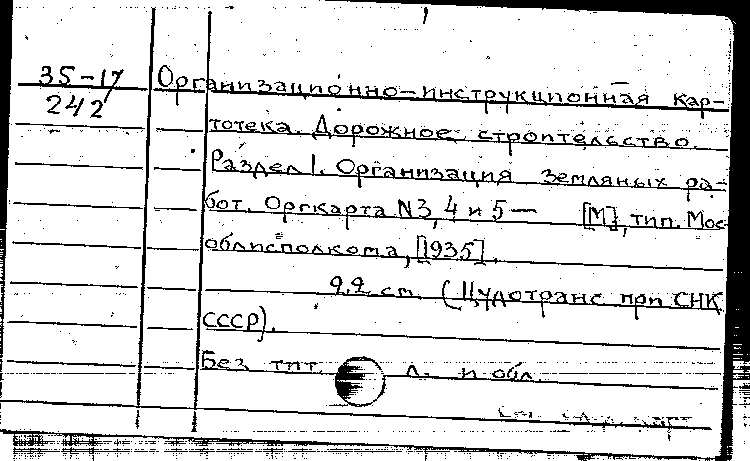 35-17
242
Организационно-инструкционная кар-
тотека. Дорожное строительство.
Раздел 1. Организация земляных ра-
бот. Оргкарта N3, 4 и 5 — [М], тип. Мос
облисполкома, [1935].
22 ст. (Цудотранс при СНК
СССР).
Без тит. л. и обл.
См. след. карт